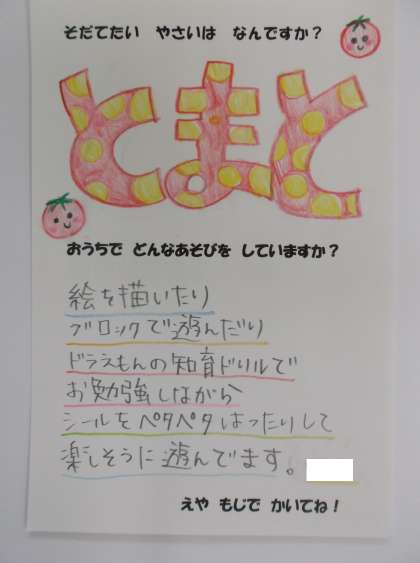 そだてたい やさいは なんですか？
とまと
おうちで どんなあそびを していますか？
絵を描いたり
ブロックで遊んだり
ドラえもんの知育ドリルで
お勉強しながら
シールをペタペタはったりして
楽しそうに遊んでます。
えや もじで かいてね！